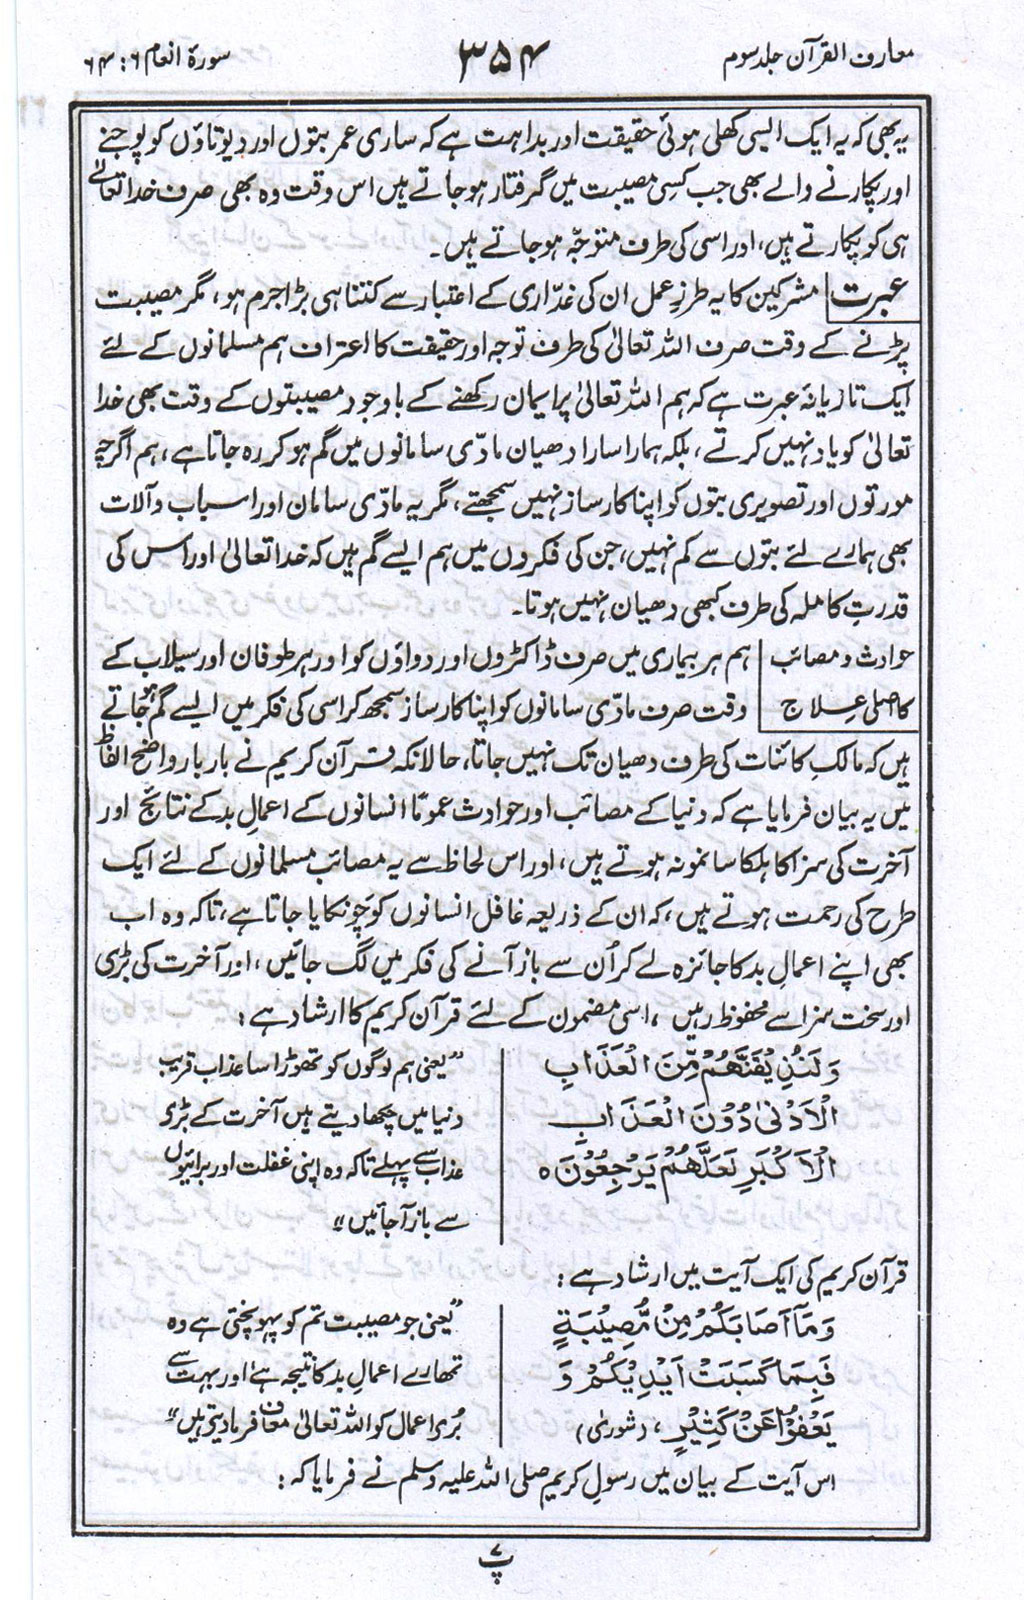 معارف القرآن جلد سوم
۳۵۴
سورۂ انعام ۶ : ۶۴
یہ بھی کہ یہ ایک ایسی کھلی ہوئی حقیقت اور بداہت ہے کہ ساری عمر بتوں اور دیوتاؤں کو پوجنے
اور پکارنے والے بھی جب کسی مصیبت میں گرفتار ہو جاتے ہیں اس وقت وہ بھی صرف خدا تعالیٰ
ہی کو پکارتے ہیں، اور اسی کی طرف متوجّہ ہو جاتے ہیں۔
عبرت مشرکین کا یہ طرزِ عمل ان کی غدّاری کے اعتبار سے کتنا ہی بڑا جرم ہو، مگر مصیبت
پڑنے کے وقت صرف اللہ تعالیٰ کی طرف توجہ اور حقیقت کا اعتراف ہم مسلمانوں کے لئے
ایک تازیانۂ عبرت ہے کہ ہم اللہ تعالیٰ پر ایمان رکھنے کے باوجود مصیبتوں کے وقت بھی خدا
تعالیٰ کو یاد نہیں کرتے، بلکہ ہمارا سارا دھیان مادّی سامانوں میں گم ہو کر رہ جاتا ہے، ہم اگرچہ
مورتوں اور تصویری بتوں کو اپنا کارساز نہیں سمجھتے، مگر یہ مادّی سامان اور اسباب و آلات
بھی ہمارے لئے بتوں سے کم نہیں، جن کی فکروں میں ہم ایسے گم ہیں کہ خدا تعالیٰ اور اس کی
قدرتِ کاملہ کی طرف کبھی دھیان نہیں ہوتا۔
حوادث و مصائب ہم ہر بیماری میں صرف ڈاکٹروں اور دواؤں کو اور ہر طوفان اور سیلاب کے
کا اصلی علاج وقت صرف مادّی سامانوں کو اپنا کارساز سمجھ کر اسی کی فکر میں ایسے گم ہو جاتے
ہیں کہ مالکِ کائنات کی طرف دھیان تک نہیں جاتا، حالانکہ قرآن کریم نے بار بار واضح الفاظ
میں یہ بیان فرمایا ہے کہ دنیا کے مصائب اور حوادث عموماً انسانوں کے اعمالِ بد کے نتائج اور
آخرت کی سزا کا ہلکا سا نمونہ ہوتے ہیں، اور اس لحاظ سے یہ مصائب مسلمانوں کے لئے ایک
طرح کی رحمت ہوتے ہیں، کہ ان کے ذریعہ غافل انسانوں کو چونکایا جاتا ہے، تاکہ وہ اب
بھی اپنے اعمالِ بد کا جائزہ لے کر اُن سے باز آنے کی فکر میں لگ جائیں، اور آخرت کی بڑی
اور سخت سزا سے محفوظ رہیں، اسی مضمون کے لئے قرآن کریم کا ارشاد ہے:
وَلَنُذِيْقَنَّهُمْ مِّنَ الْعَذَابِ
الْاَدْنٰى دُوْنَ الْعَذَابِ
الْاَكْبَرِ لَعَلَّهُمْ يَرْجِعُوْنَ ہ
”یعنی ہم لوگوں کو تھوڑا سا عذاب قریب
دنیا میں چکھا دیتے ہیں آخرت کے بڑی
عذاب سے پہلے تاکہ وہ اپنی غفلت اور برائیوں
سے باز آجائیں“
قرآن کریم کی ایک آیت میں ارشاد ہے:
وَمَآ اَصَابَكُمْ مِّنْ مُّصِيْبَةٍ
فَبِمَا كَسَبَتْ اَيْدِيْكُمْ وَ
يَعْفُوْا عَنْ كَثِيْرٍ، (شوریٰ)
”یعنی جو مصیبت تم کو پہونچتی ہے وہ
تمھارے اعمالِ بد کا نتیجہ ہے اور بہت سے
بُری اعمال کو اللہ تعالیٰ معاف فرما دیتے ہیں“
اس آیت کے بیان میں رسولِ کریم صلی اللہ علیہ وسلم نے فرمایا کہ:
پ ۷